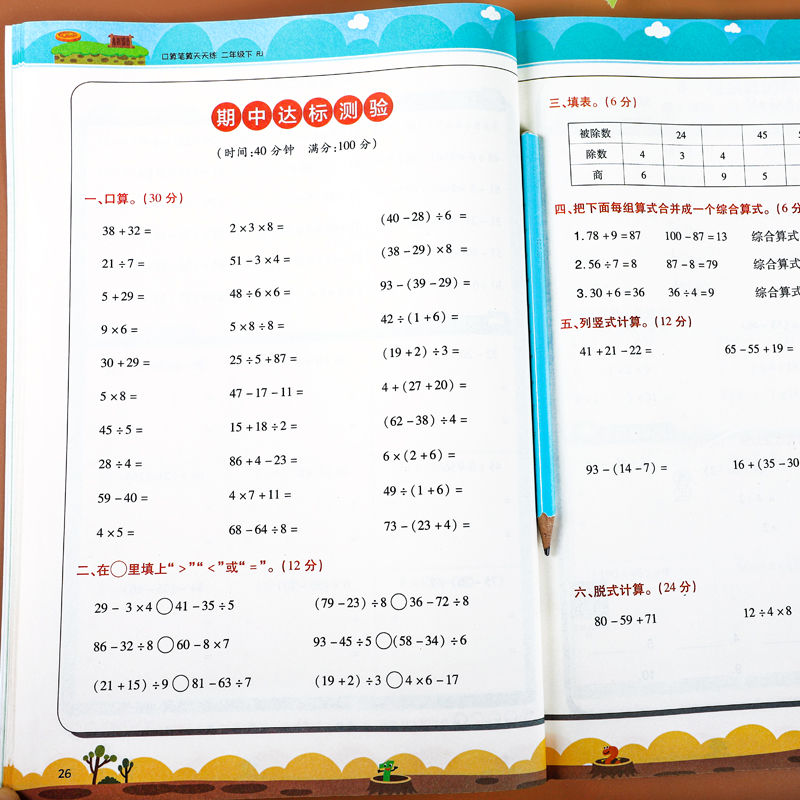 口算笔算天天练 二年级下 RJ
期中达标测验
(时间:40分钟 满分:100分)
一、口算。(30分)
38+32= 2×3×8= (40-28)÷6=
21÷7= 51-3×4= (38-29)×8=
5+29= 48÷6×6= 93-(39-29)=
9×6= 5×8÷8= 42÷(1+6)=
30+29= 25÷5+87= (19+2)÷3=
5×8= 47-17-11= 4+(27+20)=
45÷5= 15+18÷2= (62-38)÷4=
28÷4= 86+4-23= 6×(2+6)=
59-40= 4×7+11= 49÷(1+6)=
4×5= 68-64÷8= 73-(23+4)=
二、在○里填上“>”“<”或“=”。(12分)
29-3×4○41-35÷5 (79-23)÷8○36-72÷8
86-32÷8○60-8×7 93-45÷5○(58-34)÷6
(21+15)÷9○81-63÷7 (19+2)÷3○4×6-17
26
三、填表。(6分)
被除数 24 45
除数 4 3 4
商 6 9 5
四、把下面每组算式合并成一个综合算式。(6分
1.78+9=87 100-87=13 综合算式
2.56÷7=8 87-8=79 综合算式
3.30+6=36 36÷4=9 综合算式
五、列竖式计算。(12分)
41+21-22= 65-55+19=
93-(14-7)= 16+(35-30
六、脱式计算。(24分)
80-59+71 12÷4×8